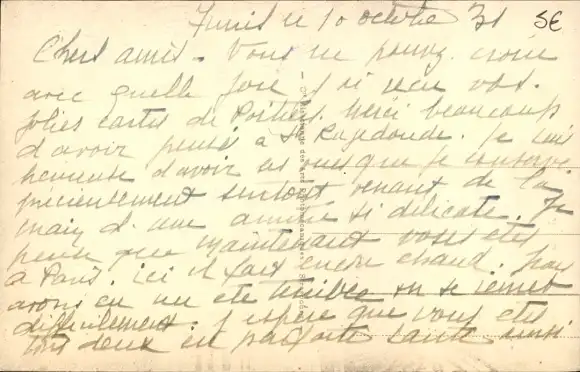 Tunis le 10 octobre 31
Chers amis. Vous ne pouvez croire
avec quelle joie j'ai reçu vos
jolies cartes de Poitiers. Merci beaucoup
d'avoir pensé à Ste Radegonde. Je suis
heureuse d'avoir ces vues que je conserve
précieusement surtout venant de la
main d'une amie si délicate. Je
pense que maintenant vous êtes
à Paris. ici il fait encore chaud. nous
avons eu un été terrible on se remet
difficilement. J'espère que vous êtes
tous deux en parfaite santé ainsi